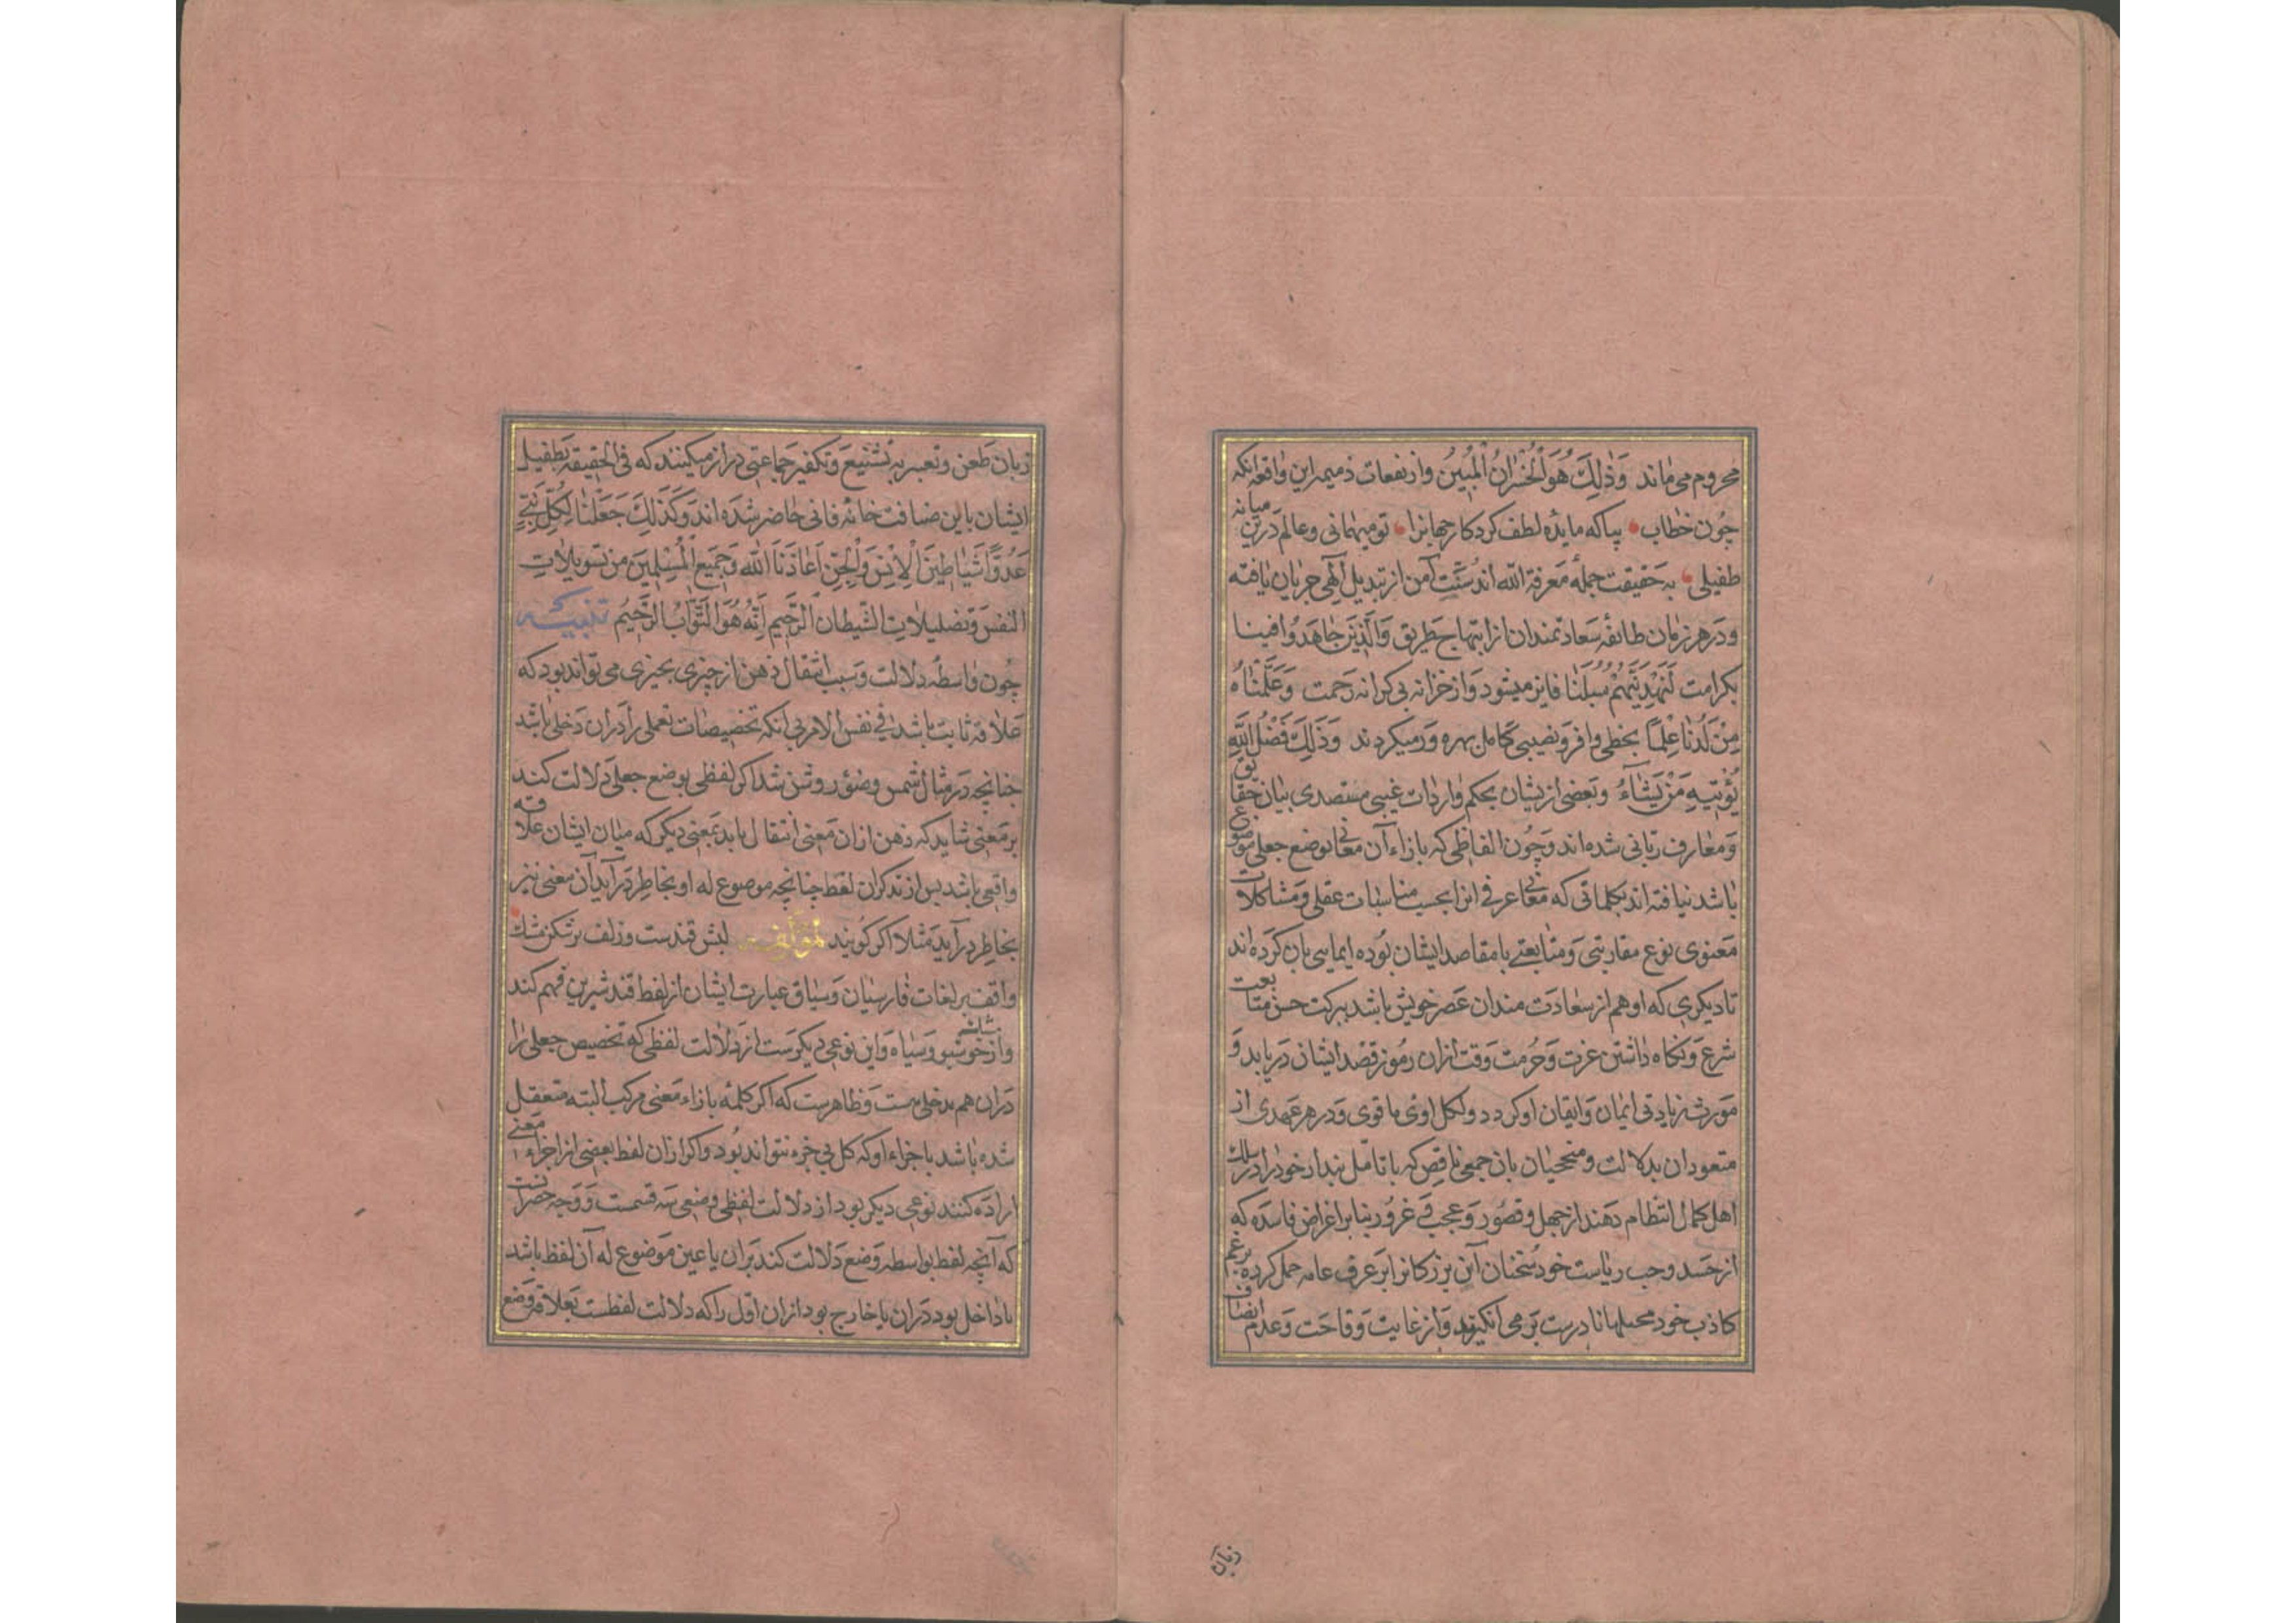 محروم می ماند وَذٰلِكَ هُوَ الْخُسْرَانُ الْمُبِينُ واز نفعات ذمیمه این واقعه انکه
چون خطاب بیا که مایده لطف کردکار جهانرا تو میهمانی و عالم درین میانه
طفیلی به حقیقت جمله معرفة الله اند سُنّت آمن از تبدیل الٓهی جریان یافته
و در هر زمان طائفه سعادتمندان از ابتهاج طریق وَالَّذِینَ جَاهَدُوا فِینَا
بکرامت لَنَهْدِیَنَّهُمْ سُبُلَنَا فایز میشود و از خزانه بی کرانه رحمت وَعَلَّمْنَاهُ
مِنْ لَدُنَّا عِلْمًا بحظی وافر و نصیبی کامل بهره ور میکردند وَذٰلِكَ فَضْلُ اللّٰهِ
یُؤْتِیهِ مَنْ یَشَآءُ و بعضی ازیشان بحکم واردات غیبی متصدی بیان حقایق
و معارف ربانی شده اند و چون الفاظی که بازاء آن معانی بوضع جعلی موضوع
باشد نیافته اند بکلماتی که معانی عرفی انرا بحسب مناسبات عقلی و مشاکلات
معنوی نوع مقاربتی و متابعتی با مقاصد ایشان بوده ایمایی بان کرده اند
تا دیکری که او هم از سعادت مندان عصر خویش باشد ببرکت حسن متابعت
شرع و نکاه داشتن عزت و حرمت وقت ازان رموز قصد ایشان دریابد و
مورث زیادتی ایمان و ایقان او کردد و لکل اوتی ما قوی و در هر عهدی از
متعودان بدلالت و منحجیان بان جمعی ناقص که با تامل پندار خود را در سلک
اهل کمال انتظام دهند از جهل و قصور و عجب و غرور بنا بر اغراض فاسده که
از حسد و حب ریاست خود سخنان آن بزرکانرا بر عرف عامه حمل کرده بزعم
کاذب خود محملها نادرست بر می انکیزند و از غایت وقاحت و عدم انصاف
زبان
زبان طعن و تعبیر به تشنیع و تکفیر جماعتی دراز میکنند که فی الحقیقه بطفیل
ایشان باین ضیافت خانه فانی حاضر شده اند وَكَذٰلِكَ جَعَلْنَا لِكُلِّ نَبِیٍّ
عَدُوًّا شَیَاطِینَ الْاِنْسِ وَالْجِنِّ اَعَاذَنَا اللّٰهُ وَجَمِیعَ الْمُسْلِمِینَ مِن تسویلاتِ
النفس و تضلیلاتِ الشّیطان الرّجیم اِنَّهُ هُوَ التَّوَّابُ الرَّحِیمُ تنبیه
چون واسطه دلالت و سبب انتقال ذهن از چیزی بچیزی می تواند بود که
علاقه ثابت باشد فی نفس الامر بی انکه تخصیصات تعملی را دران دخلی باشد
چنانچه در مثال شمس و ضؤر روشن شد اکر لفظی بوضع جعلی دلالت کند
بر معنی شاید که ذهن ازان معنی انتقال یابد بمعنی دیکر که میان ایشان علاقه
واقعی باشد پس از تذکر ان لفظ چنانچه موضوع له او بخاطر درآید آن معنی نیز
بخاطر درآید مثلا اکر کویند لمؤلفه لبش قندست و زلف پر شکن مشک
واقف بر لغات فارسیان و سیاق عبارت ایشان از لفظ قند شیرین فهم کند
و از مشک خوشبو و سیاه و این نوعی دیکرست از دلالت لفظی که تخصیص جعلی را
دران هم مدخلی هست و ظاهرست که اکر کلمه بازاء معنی مرکب البته متعقل
شده باشد با جزاء او که کل بی جزء نتواند بود و اکر ازان لفظ بعضی از اجزاء معنی
اراده کنند نوعی دیکر بود از دلالت لفظی وضعی سه قسمت و وجه حصر آنست
که آنچه لفظ بواسطه وضع دلالت کند بران یا عین موضوع له آن لفظ باشد
یا داخل بود دران یا خارج بود ازان اول را که دلالت لفظست بعلاقه وضع